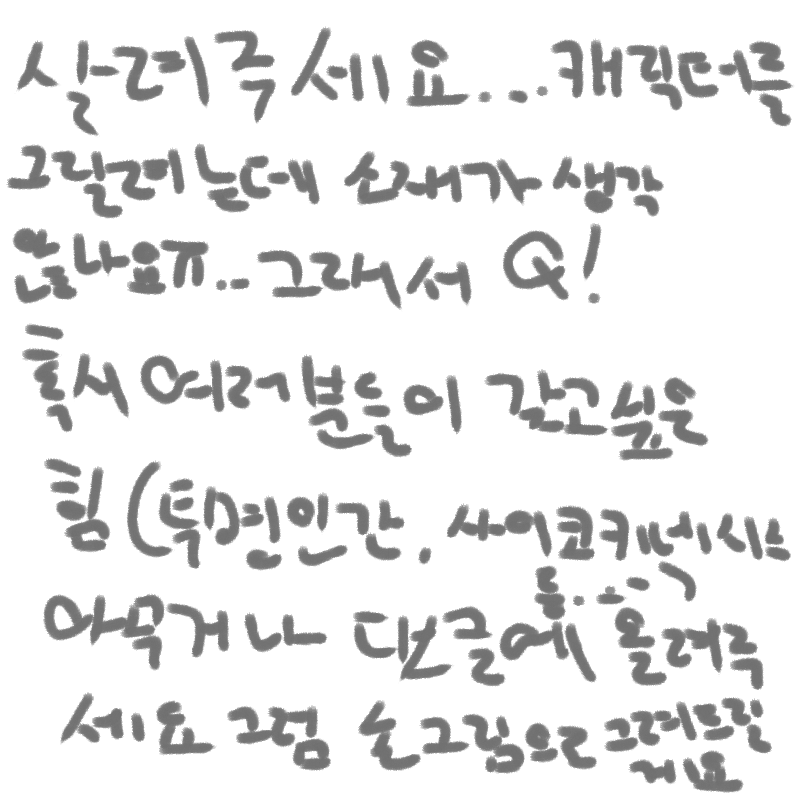 살려주세요...캐릭터를
그릴려는데 소재가 생각
않나요ㅠ...그래서 Q!
혹시 여러분들이 갖고싶은
힘 (투명인간, 사이코키네시스
등....)
아무거나 댓글에 올려주
세요 그럼 손그림으로 그려드릴
게요